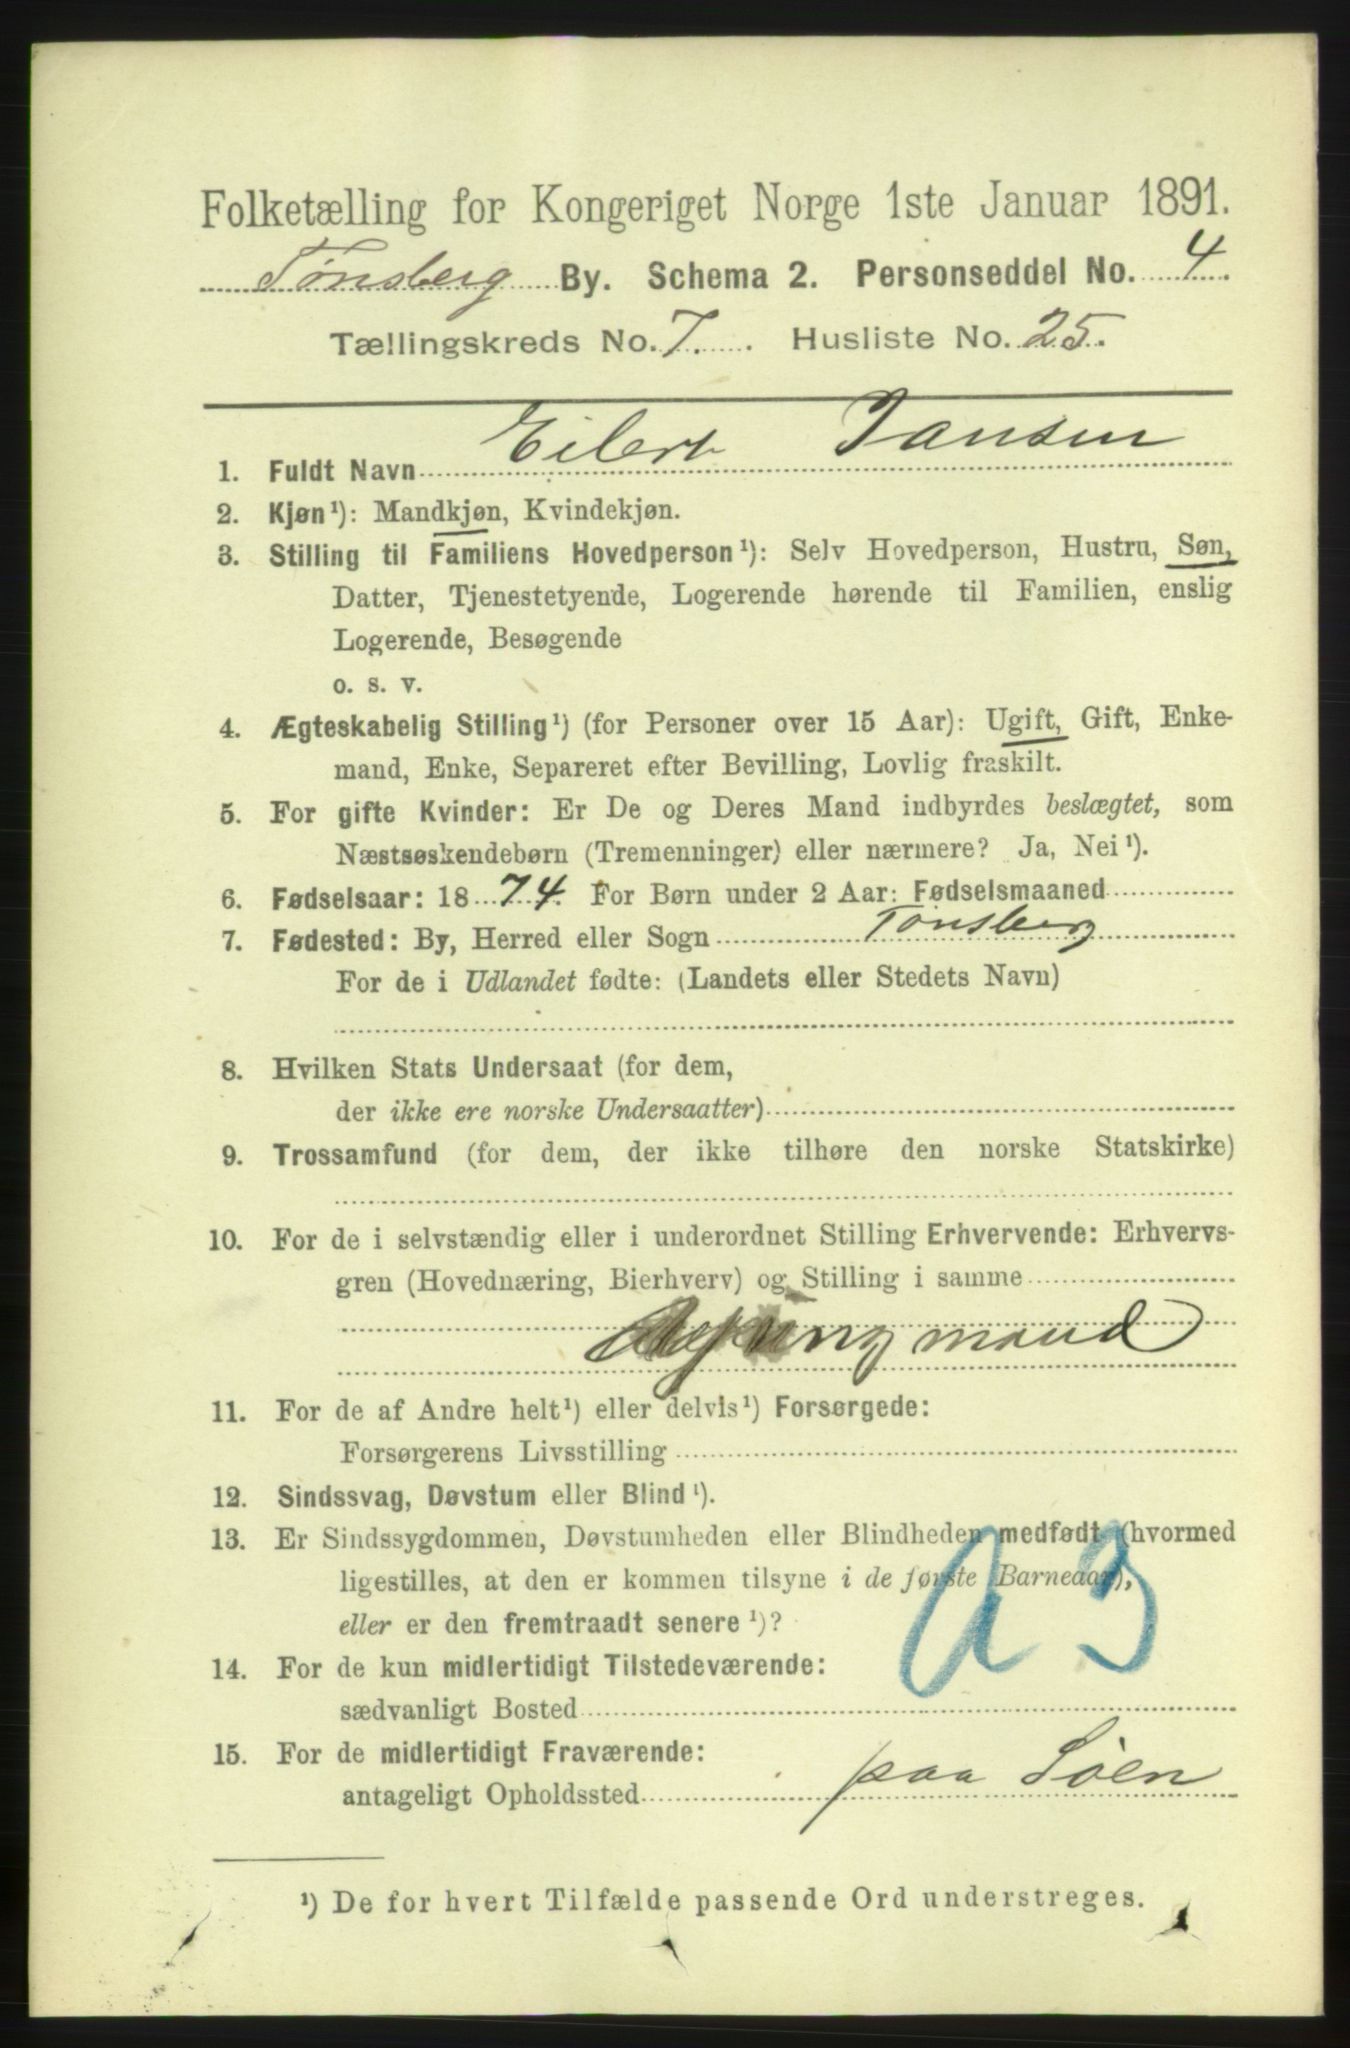 Folketælling for Kongeriget Norge 1ste Januar 1891.
Tønsberg By. Schema 2. Personseddel No. 4.
Tællingskreds No. 7. Husliste No. 25.
1. Fuldt Navn Eilert Jansen
2. Kjøn¹): Mandkjøn, Kvindekjøn.
3. Stilling til Familiens Hovedperson¹): Selv Hovedperson, Hustru, Søn,
Datter, Tjenestetyende, Logerende hørende til Familien, enslig
Logerende, Besøgende
o. s. v.
4. Ægteskabelig Stilling¹) (for Personer over 15 Aar): Ugift, Gift, Enke-
mand, Enke, Separeret efter Bevilling, Lovlig fraskilt.
5. For gifte Kvinder: Er De og Deres Mand indbyrdes beslægtet, som
Næstsøskendebørn (Tremenninger) eller nærmere? Ja, Nei¹).
6. Fødselsaar: 1874. For Børn under 2 Aar: Fødselsmaaned
7. Fødested: By, Herred eller Sogn Tønsberg
For de i Udlandet fødte: (Landets eller Stedets Navn)
8. Hvilken Stats Undersaat (for dem,
der ikke ere norske Undersaatter)
9. Trossamfund (for dem, der ikke tilhøre den norske Statskirke)
10. For de i selvstændig eller i underordnet Stilling Erhvervende: Erhvervs-
gren (Hovednæring, Bierhverv) og Stilling i samme
mand
11. For de af Andre helt¹) eller delvis¹) Forsørgede:
Forsørgerens Livsstilling
12. Sindssvag, Døvstum eller Blind¹).
13. Er Sindssygdommen, Døvstumheden eller Blindheden medfødt (hvormed
ligestilles, at den er kommen tilsyne i de første Barneaar),
eller er den fremtraadt senere¹)?
14. For de kun midlertidigt Tilstedeværende:
sædvanligt Bosted
15. For de midlertidigt Fraværende:
antageligt Opholdssted paa Søen
¹) De for hvert Tilfælde passende Ord understreges.